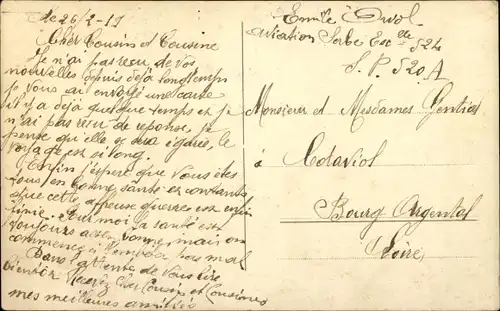 le 26/2-19
Cher Cousin et Cousine
Je n'ai pas reçu de vos
nouvelles depuis déjà longtemps
je vous ai envoyé une carte
il y a déjà quelque temps et je
n'ai pas reçu de réponse je
pense qu'elle se sera égarée, le
voyage est si long.
Enfin j'espère que vous êtes
tous en bonne santé et contents
que cette affreuse guerre est enfin
finie. Pour moi la santé est
toujours assez bonne, mais on
commence à s'ennuyer pas mal
Dans l'attente de vous lire
bientôt Recevez Cher Cousin et Cousines
mes meilleures amitiés
Emile
Aviation Serbe Esc lle 524
S. P. 520 A
Monsieur et Mesdames
à
Bourg Argental
Loire